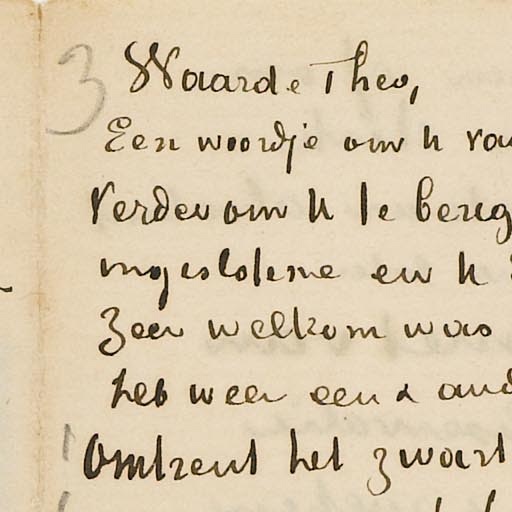 3 Waarde Theo,
Een woordje om U
Verder om U te
ingeslotene en U
Zeer welkom was
heb weer een &
Omtrent het zwart